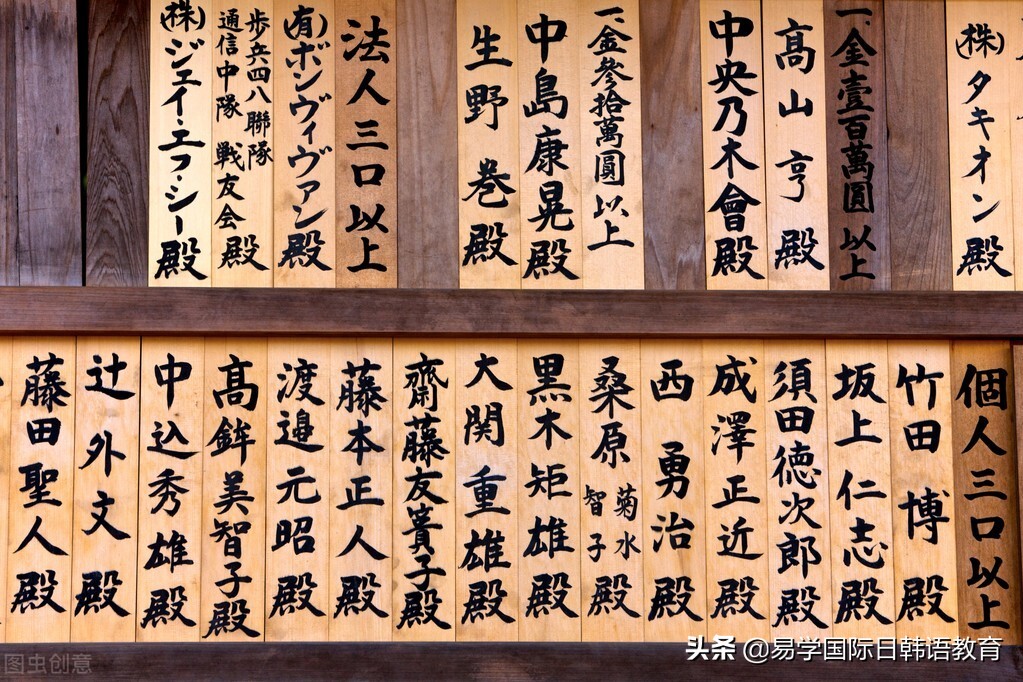 ㈱タキオン殿
一、金壹百萬圓以上
髙山亨殿
中央乃木會殿
一、金參拾萬圓以上
中島康晃殿
生野巻殿
法人三口以上
㈲ボンヴィヴァン殿
歩兵四八聯隊
通信中隊 戦友会殿
㈱ジェイ・エフ・シー殿
個人三口以上
竹田博殿
坂上仁志殿
須田徳次郎殿
成澤正近殿
西勇治殿
桑原 菊水
智子 殿
黒木矩雄殿
大関重雄殿
齋藤友賓子殿
藤本正人殿
渡邉元昭殿
髙鉾美智子殿
中込秀雄殿
辻外文殿
藤田聖人殿
头条 @易学国际日韩语教育
图虫创意